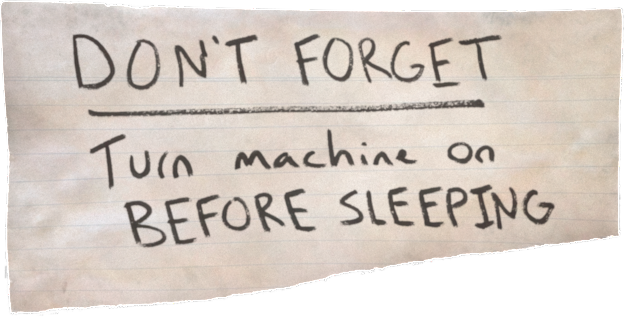 DON'T FORGET
Turn machine on
BEFORE SLEEPING